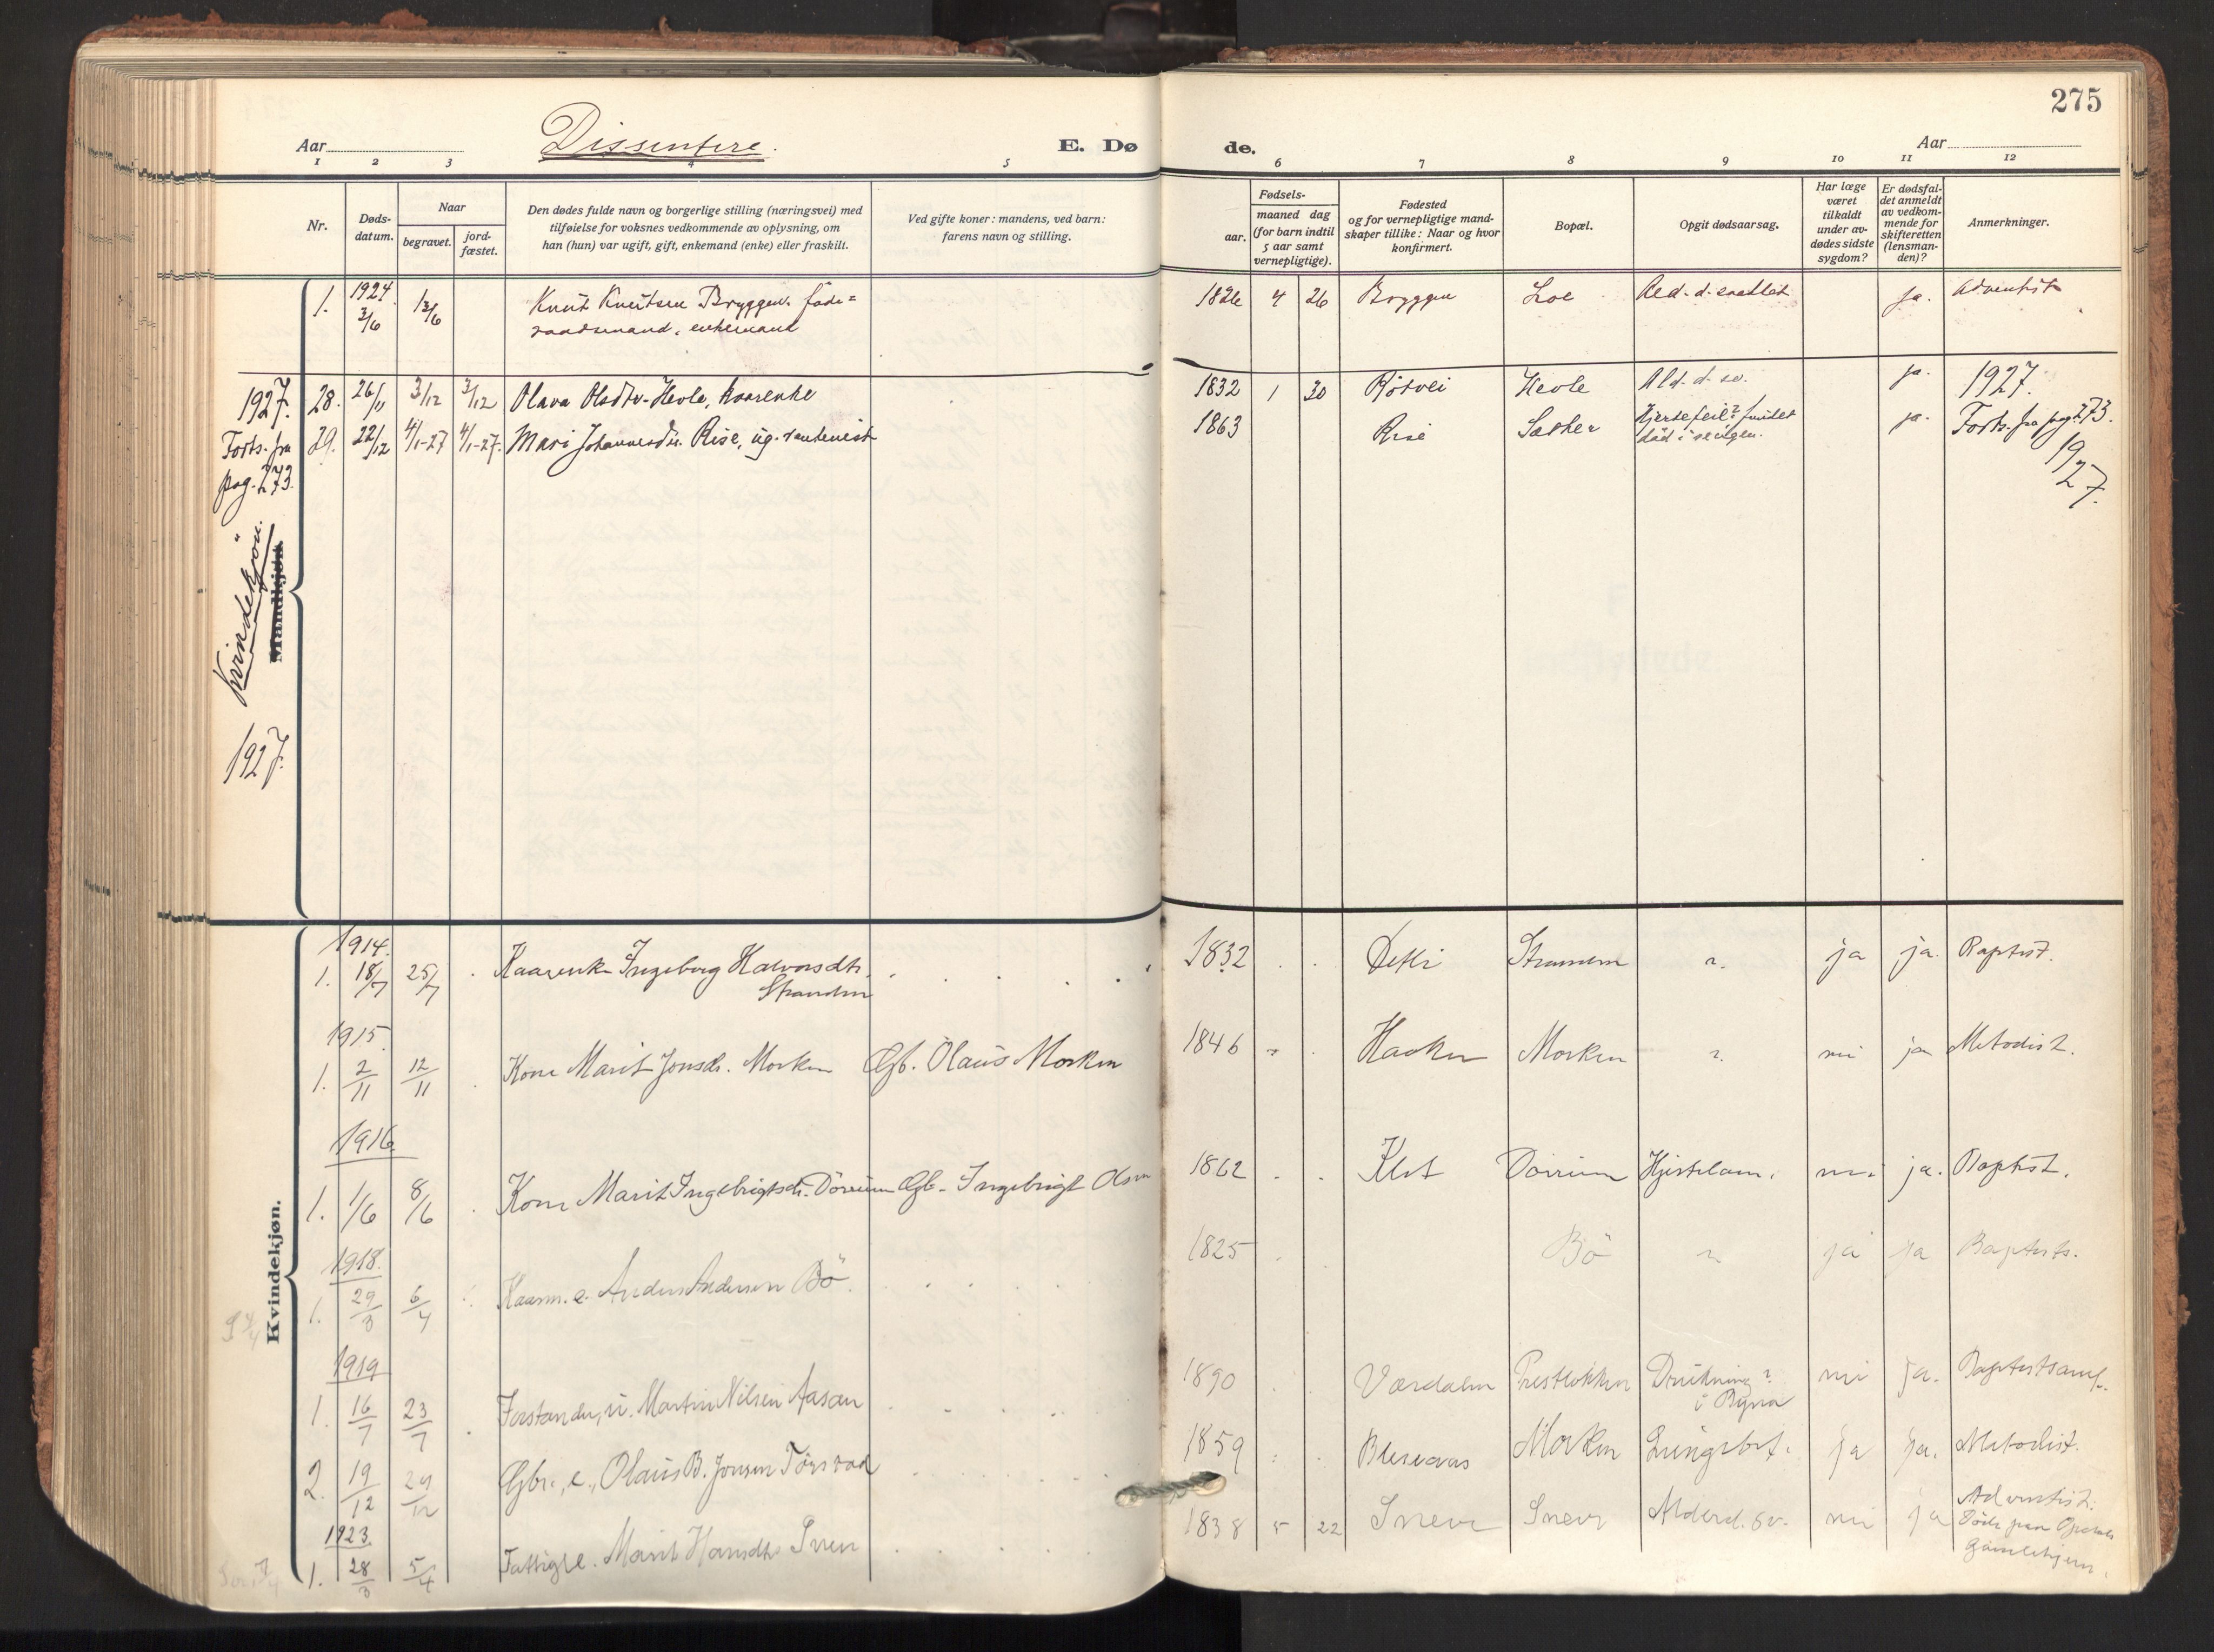 275
Aar
Dissentere.
E. Dø
de.
Aar
1 2 3 4 5 6 7 8 9 10 11 12
Nr.
Døds-
datum.
Naar
begravet.
jord-
fæstet.
Den dødes fulde navn og borgerlige stilling (næringsvei) med
tilføielse for voksnes vedkommende av oplysning, om
han (hun) var ugift, gift, enkemand (enke) eller fraskilt.
Ved gifte koner: mandens, ved barn:
farens navn og stilling.
Fødsels-
aar.
maaned dag
(for barn indtil
5 aar samt
vernepligtige).
Fødested
og for vernepligtige mand-
skaper tillike: Naar og hvor
konfirmert.
Bopæl.
Opgit dødsaarsag.
Har læge
været
tilkaldt
under av-
dødes sidste
sygdom?
Er dødsfal-
det anmeldt
av vedkom-
mende for
skifteretten
(lensman-
den)?
Anmerkninger.
1924
1. 3/6 13/6 Knut Knutsen Bryggen, føde=
raadsmand, enkemand
4 26 Bryggen Loe ja. Adventist
1927. 28. 26/11 3/12 3/12 Olava Olsdtr. Hevle, kaarenke
1832 1 30 Hevle Ald. d. sv. ja. 1927.
Forts. fra 29. 22/12 4/1-27 4/1-27. Mari Johannesdtr. Rise, ug.
pag. 273.
1863 Rise Sæther Hjertefeil? fundet
død i sengen. ja. Forts. fra pag. 273.
1927.
Kvindekjøn.
Mandkjøn.
1927.
Kvindekjøn.
1914.
1. 18/7 25/7 Kaarenke Ingeborg Halvorsdtr.
Stranden
1832 Stranden ja ja. Baptist.
1915.
1. 2/11 12/11 Kone Marit Jonsdr. Morken Gb. Olaus Morken
1846 Morken ja Metodist.
1916
1. 1/6 8/6 Kone Marit Ingebrigtsdr. Dörrum Gb. Ingebrigt Olsen
1862 Dörrum ja. Baptist.
1918.
1. 29/3 6/4 Kaarm. e. Anders Andersen Bö.
1825 Bö ja ja Baptists.
1919
1. 16/7 23/7 Forstander, u. Martin Nilsen Aasan
1890 Værdalen Drukning?
ja. Baptistsamf.
2. 19/12 29/12 Gbr., e., Olaus B. Jonsen
1859 Morken Lungebet. ja ja. Metodist.
1923
1. 28/3 5/4 Fattigle. Marit Hansdtr.
1838 5 22 Alderd. sv. ja Adventist.
Döde paa
Gamlehjem.